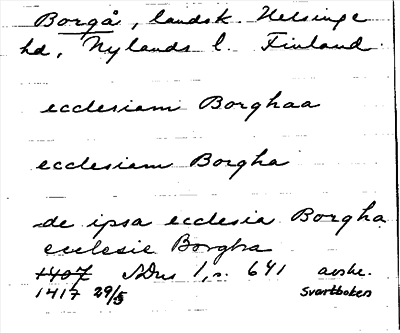 Borgå, landsk. Helsinge
hd, Nylands l. Finland.
ecclesiam Borghaa
ecclesiam Borgha
de ipsa ecclesia Borgha
ecclesie Borgha
1407 SDns 1, s. 641 avskr.
1417 29/5 Svartboken